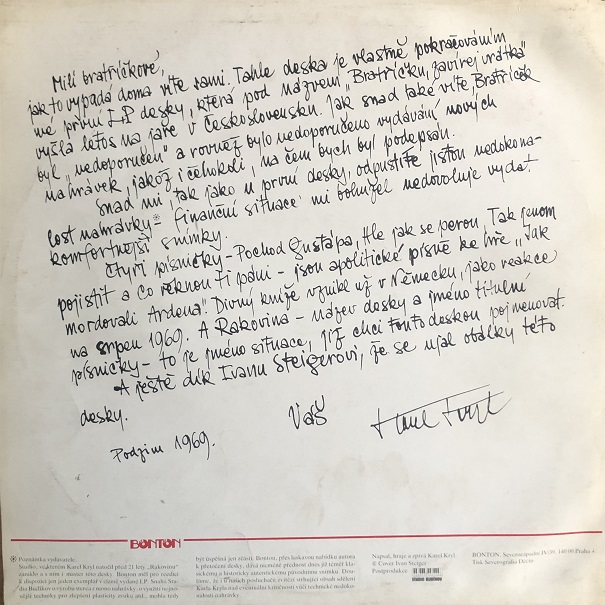 Milí bratříčkové,
jak to vypadá doma víte sami. Tahle deska je vlastně pokračováním
mé první LP desky, která pod názvem "Bratříčku, zavírej vrátka"
vyšla letos na jaře v Československu. Jak snad také víte, Bratříček
byl "nedoporučen" a rovněž bylo nedoporučeno vydávání nových
nahrávek, jakož i čehokoli, na čem bych byl podepsán.
Snad mi, tak jako u první desky, odpustíte jistou nedokona-
lost nahrávky* - finanční situace mi bohužel nedovoluje vydat
komfortnější snímky.
Čtyři písničky - Pochod Gustápa, Hle jak se perou, Tak jenom
pojistit a Co řeknou ti páni - jsou apolitické písně ke hře "Jak
mordovali Ardena". Divný kníže vznikl už v Německu, jako reakce
na srpen 1969. A Rakovina - název desky a jméno titulní
písničky - to je jméno situace, jíž chci touto deskou pojmenovat.
A ještě dík Ivanu Steigerovi, že se ujal obálky této
desky.
Váš Karel Kryl
Podzim 1969.
BONTON
* Poznámka vydavatele:
Studio, v kterém Karel Kryl natočil před 21 lety "Rakovinu"
zaniklo a s ním i master této desky. Bonton měl pro reedici
k dispozici jen jeden exemplář v cizině vydané LP. Studio Sta-
Napsal, hraje a zpívá Karel Kryl
© Cover Ivan Steiger
Postprodukce
BONTON,
Tisk Severografia Děčín